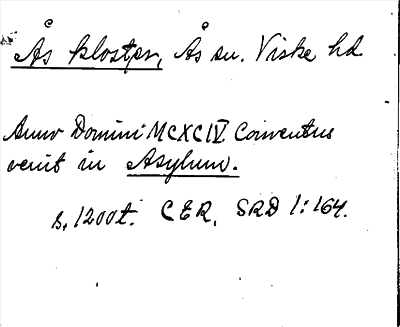 Ås kloster, Ås sn. Viske hd
Anno Domini MCXCIV Conventus
venit in Asylum.
s. 1200t. CER, SRD 1:164.